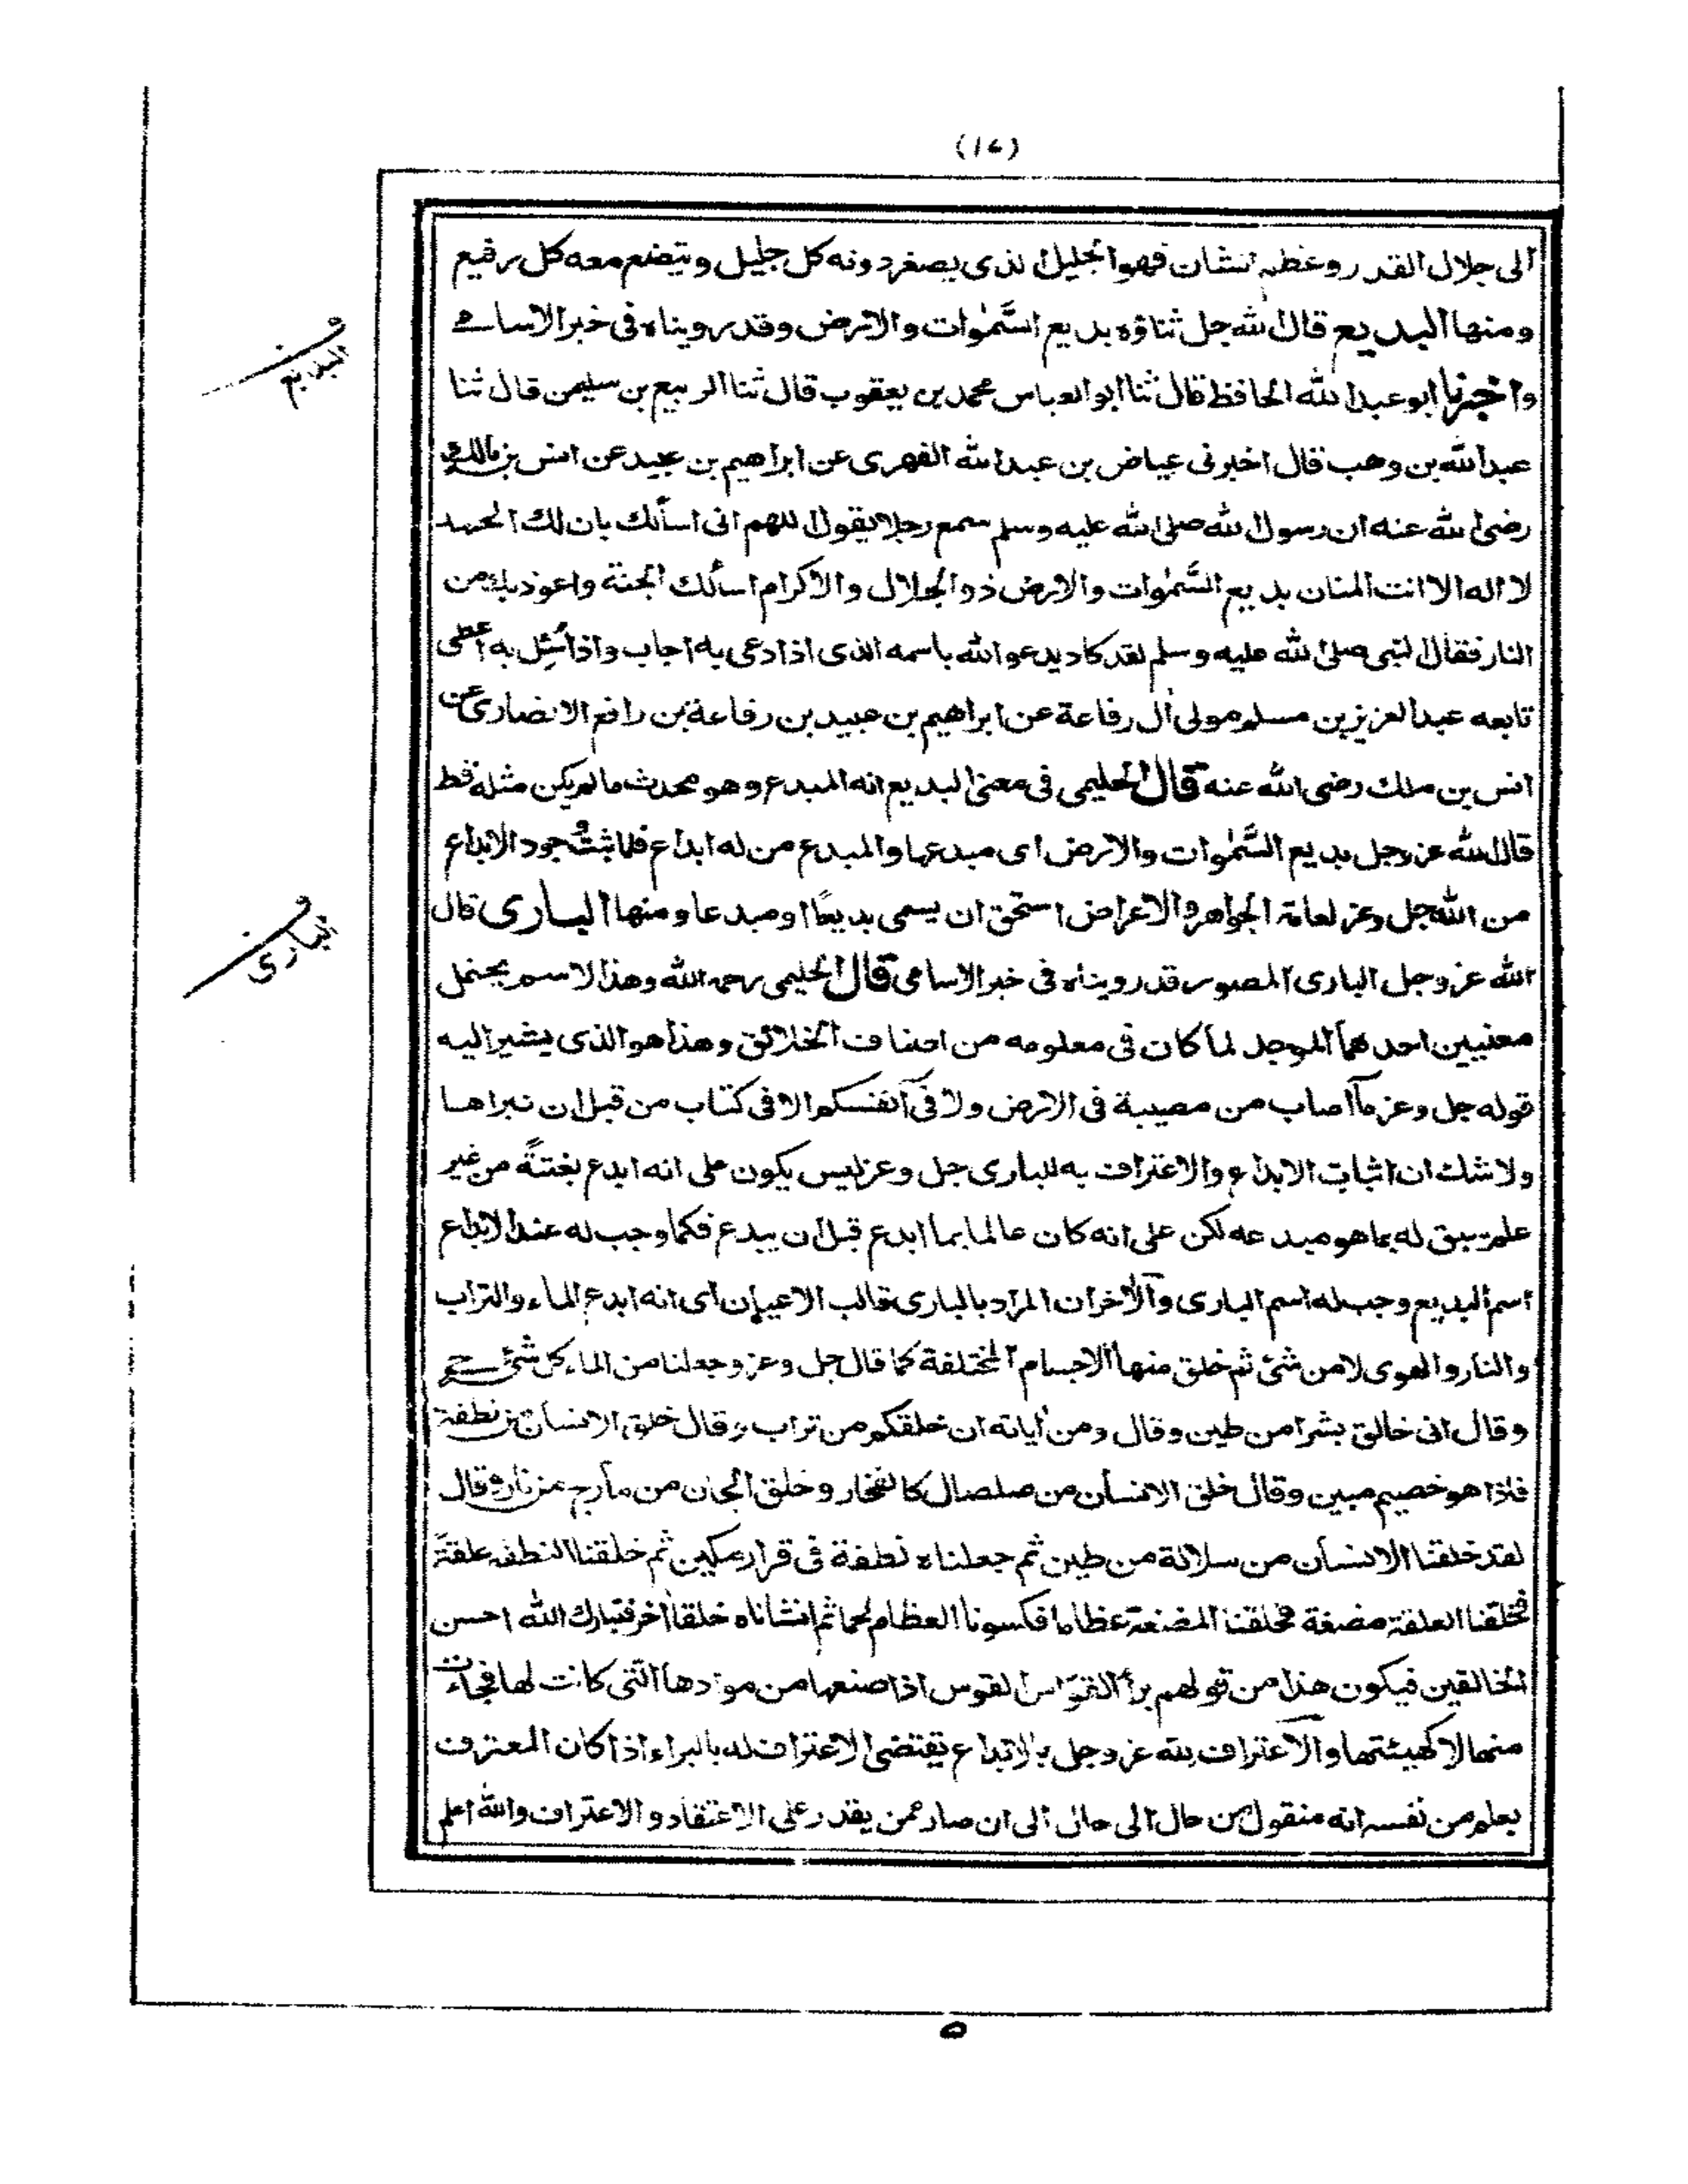 الى جلال القدر وعظم الشان فهو الجليل الذى يصغر دونه كل جليل ويتضع معه كل رفيع
ومنها البديع قال الله جل ثناؤه بديع السَّمٰوات والارض وقد رويناه فى خبر الاسامى
البديع
واخبرنا ابو عبدالله الحافظ قال ثنا ابو العباس محمد بن يعقوب قال ثنا الربيع بن سليمن قال ثنا
عبدالله بن وهب قال اخبرنى عياض بن عبدالله الفهرى عن ابراهيم بن عبيد عن انس بن مالك
رضى الله عنه ان رسول الله صلى الله عليه وسلم سمع رجلا يقول اللهم انى اسألك بان لك الحمد
لا اله الا انت المنان بديع السَّمٰوات والارض ذو الجلال والاكرام اسألك الجنة واعوذ بك من
النار فقال النبى صلى الله عليه وسلم لقد كاد يدعو الله باسمه الذى اذا دعى به اجاب واذا سُئِل به اعطى
تابعه عبدالعزيز بن مسلم مولى اٰل رفاعة عن ابراهيم بن عبيد بن رفاعة بن رافع الانصارى عن
انس بن ملك رضى الله عنه قال الحليمى فى معنى البديع انه المبدع وهو محدث ما لم يكن مثله قط
قال الله عز وجل بديع السَّمٰوات والارض اى مبدعها والمبدع من له ابداع فلما ثبت وجود الابداع
من الله جل وعز لعامة الجواهر والاعراض استحق ان يسمى بديعًا او مبدعا ومنها البارى قال
البارى
الله عز وجل البارى المصور وقد رويناه فى خبر الاسامى قال الحليمى رحمه الله وهذا الاسم يحتمل
معنيين احدهما الموجد لما كان فى معلومه من اصناف الخلائق وهذا هو الذى يشير اليه
قوله جل وعز مآ اصاب من مصيبة فى الارض ولا فى آنفسكم الا فى كتاب من قبل ان نبراها
ولا شك ان اثبات الابداع والاعتراف به للبارى جل وعز ليس يكون على انه ابدع بغتةً من غير
علم سبق له بما هو مبدعه لكن على انه كان عالما بما ابدع قبل ان يبدع فكما وجب له عند الابداع
اسم البديع وجب له اسم البارى والآخر ان المراد بالبارى قالب الاعيان اى انه ابدع الماء والتراب
والنار والهوى لا من شئ ثم خلق منها الاجسام المختلفة كما قال جل وعز وجعلنا من الماء كل شئ حى
وقال انى خالق بشرا من طين وقال ومن اٰياته ان خلقكم من تراب وقال خلق الانسان من نطفة
فاذا هو خصيم مبين وقال خلق الانسان من صلصال كالفخار وخلق الجان من مارج من نار وقال
لقد خلقنا الانسان من سلالة من طين ثم جعلناه نطفة فى قرار مكين ثم خلقنا النطفة علقة
فخلقنا العلقة مضغة فخلقنا المضغة عظاما فكسونا العظام لحما ثم انشاناه خلقا اٰخر فتبارك الله احسن
الخالقين فيكون هذا من قولهم برأ القوّاس القوس اذا صنعها من موادها التى كانت لها فجاءت
منها لا كهيئتها والاعتراف لله عز وجل بالابداع يقتضى الاعتراف له بالبراء اذا كان المعترف
يعلم من نفسه انه منقول من حال الى حال الى ان صار ممن يقدر على الاعتقاد والاعتراف والله اعلم